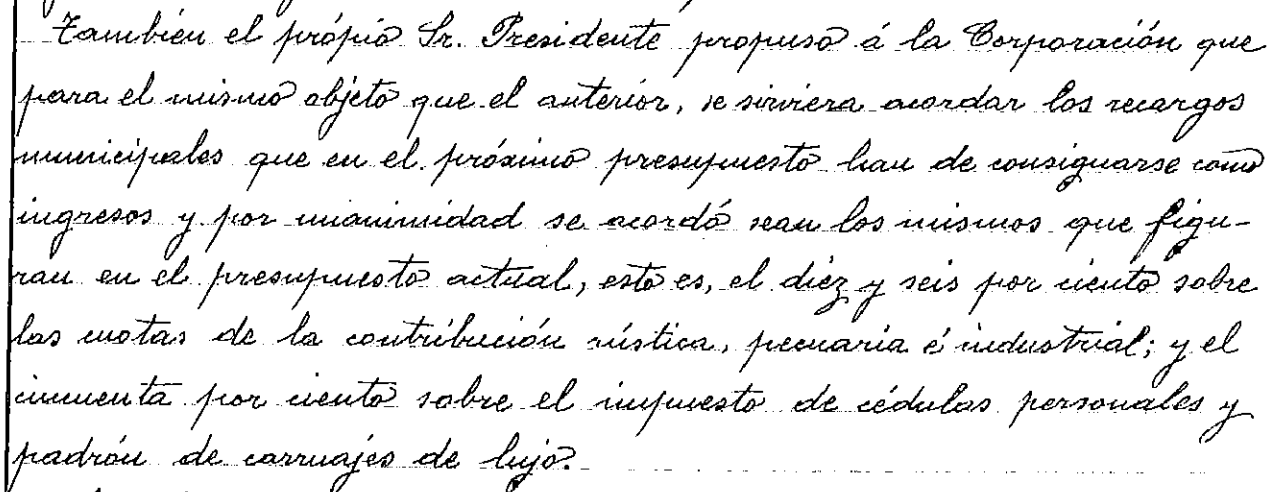 También el própio Sr. Presidente propuso á la Corporación que
para el mismo objeto que el anterior, se sirviera acordar los recargos
municipales que en el próximo presupuesto han de consignarse como
ingresos y por unanimidad se acordó sean los mismos que figu-
ran en el presupuesto actual, esto es, el diéz y seis por ciento sobre
las cuotas de la contribución rústica, pecuaria é industrial; y el
cincuenta por ciento sobre el impuesto de cédulas personales y
padrón de carruajes de lujo.